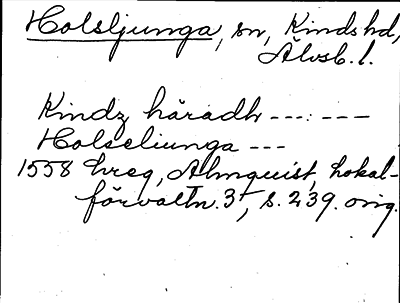 Holsljunga, sn, Kinds hd,
Älvsb. l.
Kindz häradh --- ---
Holseliunga ---
1558 hreg, Almquist, Lokal-
förvaltn. 3¹, s. 239. orig.